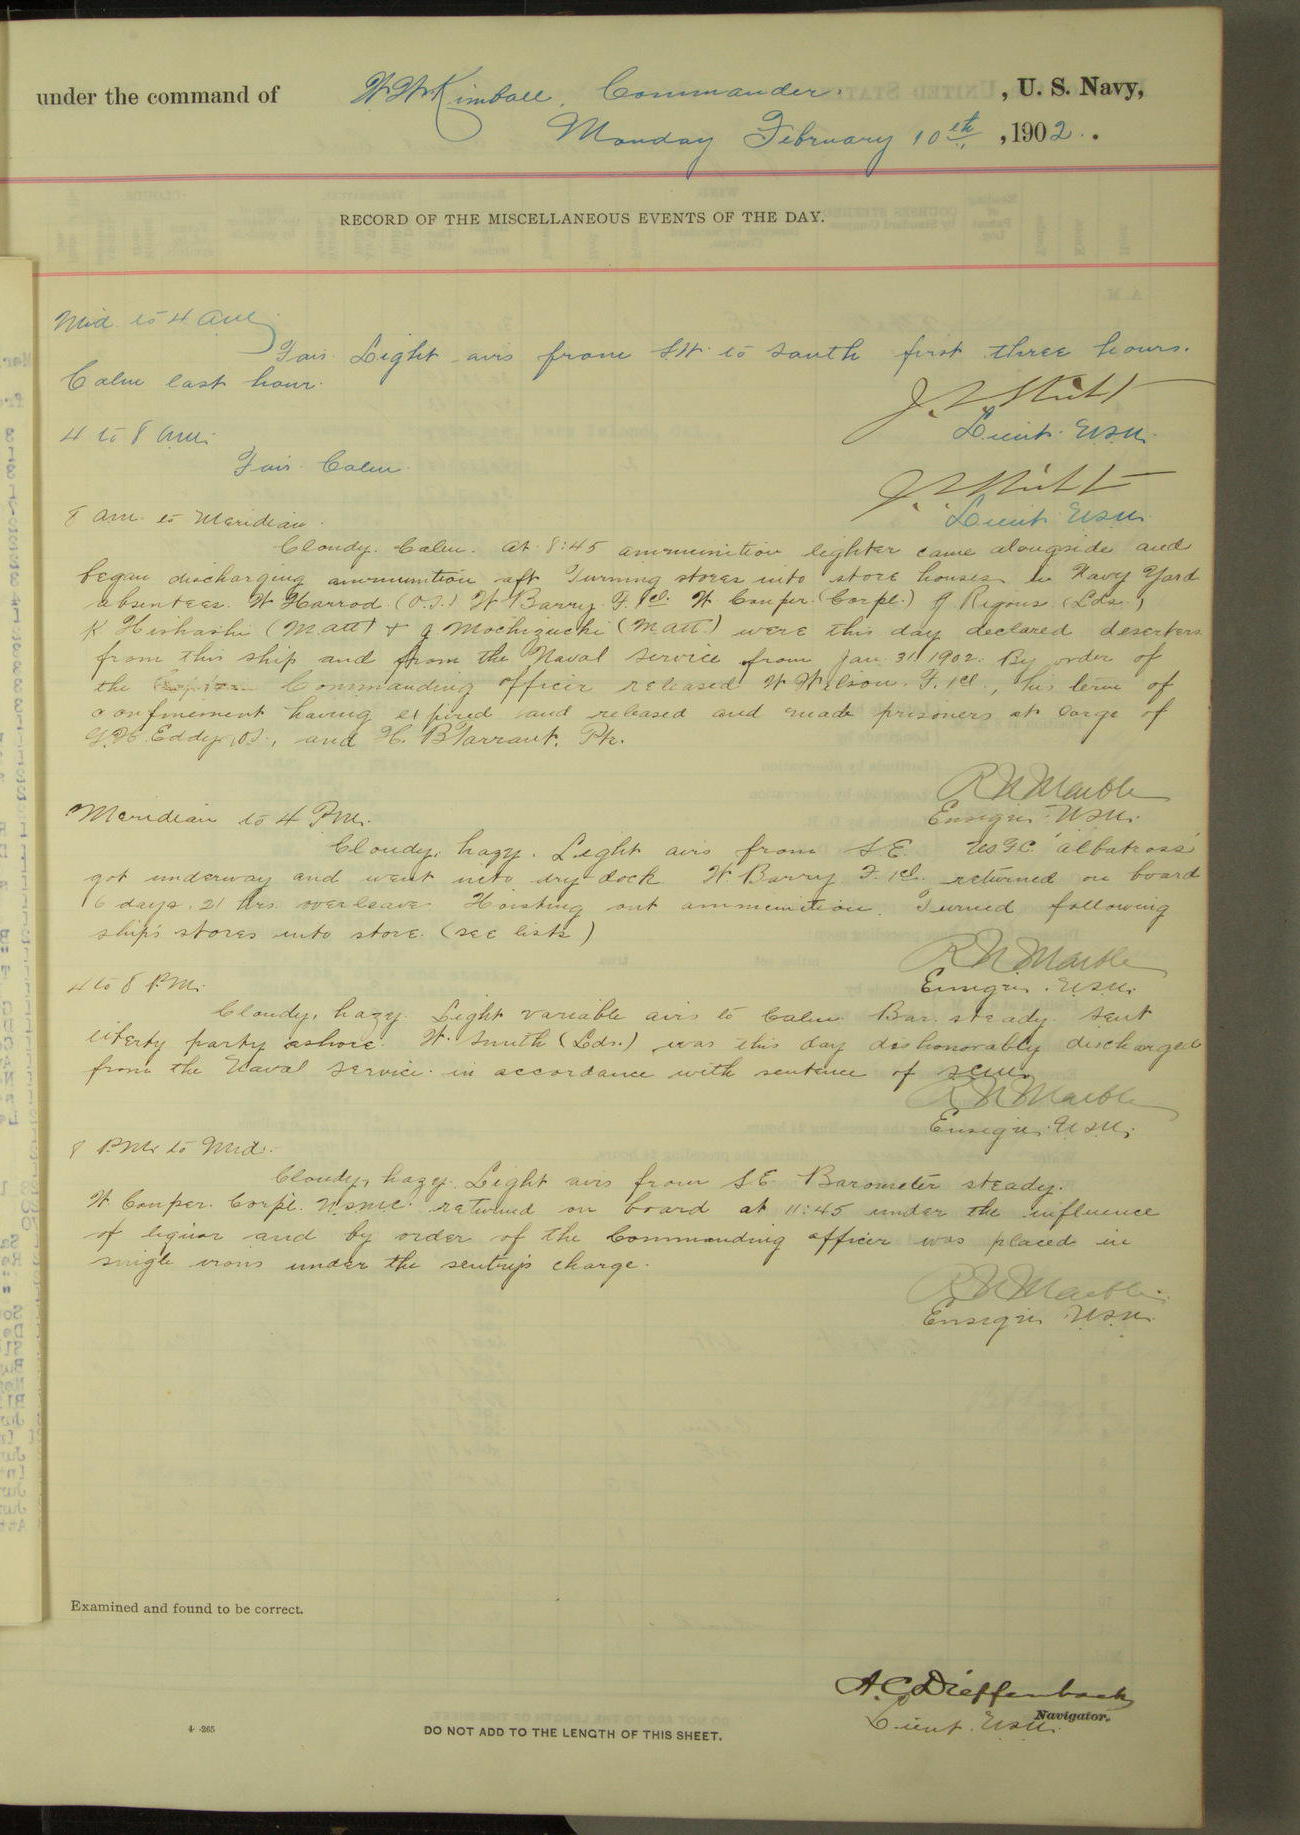 under the command of W W Kimball, Commander. , U. S. Navy,
Monday February 10th , 1902. .
RECORD OF THE MISCELLANEOUS EVENTS OF THE DAY.
Mid. to 4 am.
Fair. Light airs from SW. to South first three hours.
Calm last hour.
Lieut. USN.
4 to 8 am.
Fair. Calm.
Lieut. USN.
8 am. to Meridian.
Cloudy. Calm. At 8:45 ammunition lighter came alongside and
began discharging ammunition aft. Turning stores into store houses in Navy Yard
absentees. W Harrod (O.S.) W Barry. F. 1cl. W Couper (Corpl.) J Rigous (Lds.)
K Hishashi (M.att) + J Mochizuchi (M att.) were this day declared deserters
from this ship and from the Naval Service from Jan. 31 1902. By order of
the Commanding officer released W Wilson. F. 1cl., his term of
confinement having expired and released and made prisoners at large of
Eddy, OS., and H. B Tarrant, Pte.
R N Marble
Ensign. USN.
Meridian to 4 P.M.
Cloudy, hazy. Light airs from S.E. US F.C. 'Albatross'
got underway and went into dry-dock. W Barry F. 1cl. returned on board
6 days. 21 hrs. overleave. Hoisting out ammunition. Turned following
ship's stores into store. (see lists)
R N Marble
Ensign. USN.
4 to 8 P.M.
Cloudy, hazy. Light variable airs to Calm. Bar. steady. Sent
liberty party ashore. W. Smith (Lds.) was this day dishonorably discharged
from the Naval Service in accordance with sentence of SCM.
R N Marble
Ensign. USN.
8 P.M. to Mid.
Cloudy, hazy. Light airs from SE Barometer steady.
W Couper. Corpl. USMC. returned on board at 11:45 under the influence
of liquor and by order of the Commanding officer was placed in
single irons under the sentry's charge.
R N Marble
Ensign USN.
Examined and found to be correct.
A. C. Dieffenbach
Lieut. USN. Navigator.
4-265
DO NOT ADD TO THE LENGTH OF THIS SHEET.